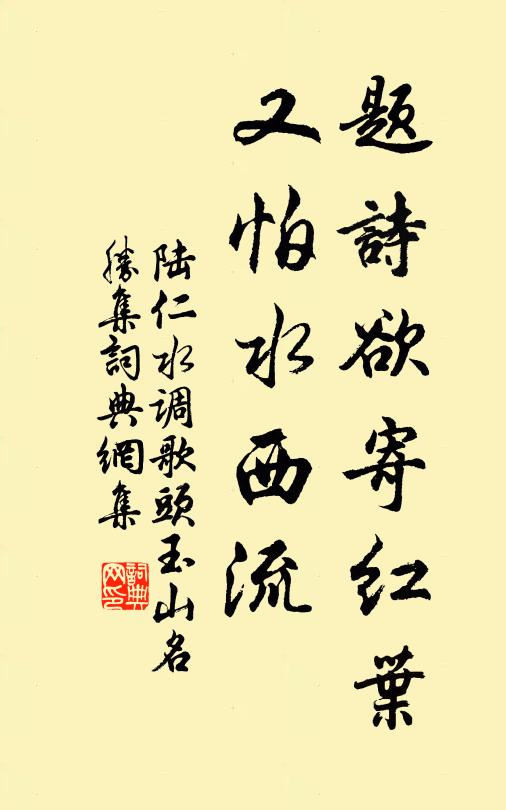 题詩欲寄红葉
又怕水西流
陆仁水调歌頭玉山名
勝集詞典網集
詞典
网印